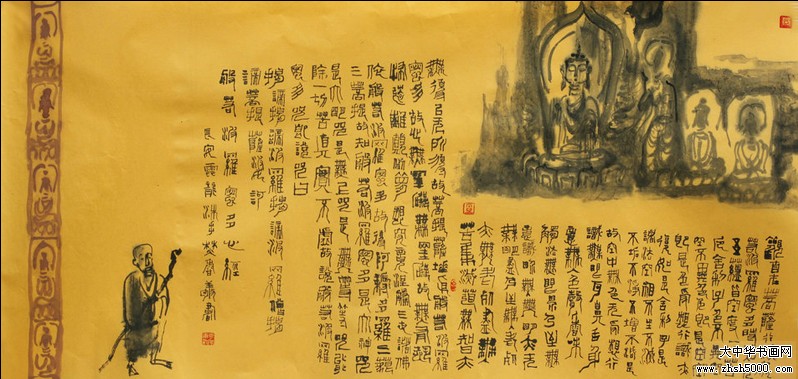 觀自在菩薩行
般若波羅蜜多時
五蘊皆空度
厄舍利子色不異
空不異色色即是空
即是色受想行識亦
復如是舍利子是
諸法空相不生不滅
不垢不淨不增不減是
故空中無色無受想行
識無眼耳鼻舌身
意無色聲香味
觸法無眼界乃至無
意識界無無明亦無
無明盡乃至無老死
亦無老死盡無
苦集滅道無智亦
無得以無所得故菩提薩埵依般若
波羅蜜多故心無罣礙無罣礙故無有恐
怖遠離顛倒夢想究竟涅槃三世諸佛
依般若波羅蜜多故得阿耨多羅三藐
三菩提故知般若波羅蜜多是大神咒
是大明咒是無上咒是無等等咒能
除一切苦真實不虛故說般若波羅
蜜多咒即說咒曰
揭諦揭諦波羅揭諦波羅僧揭
諦菩提薩婆訶
般若波羅蜜多心經
長安
大中华书画网
www.zhsh5000.com